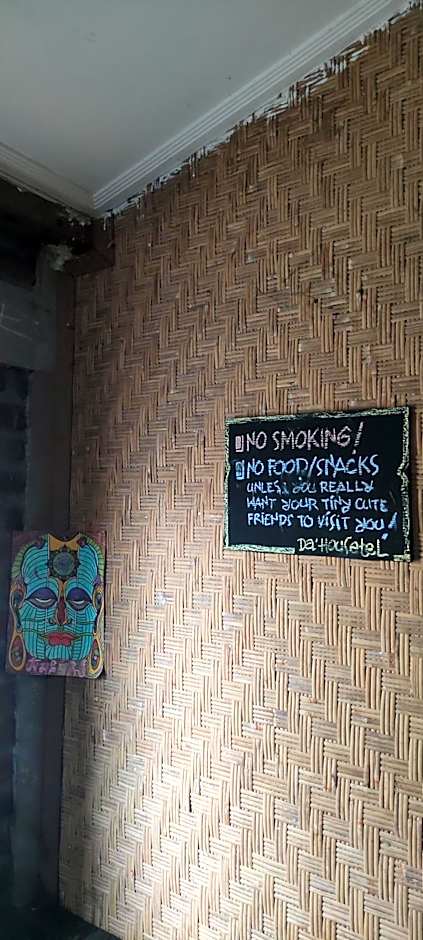 NO SMOKING!
NO FOOD/SNACKS
UNLESS YOU REALLY
WANT YOUR TINY CUTE
FRIENDS TO VISIT YOU!
Da'HOUSeteL